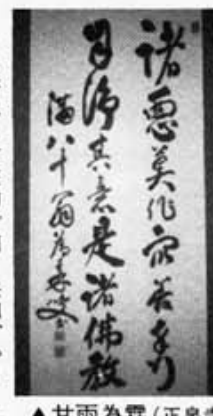 諸惡莫作衆善奉行
自淨其意是諸佛教
満八十翁為
▲甘雨為霖(正泉